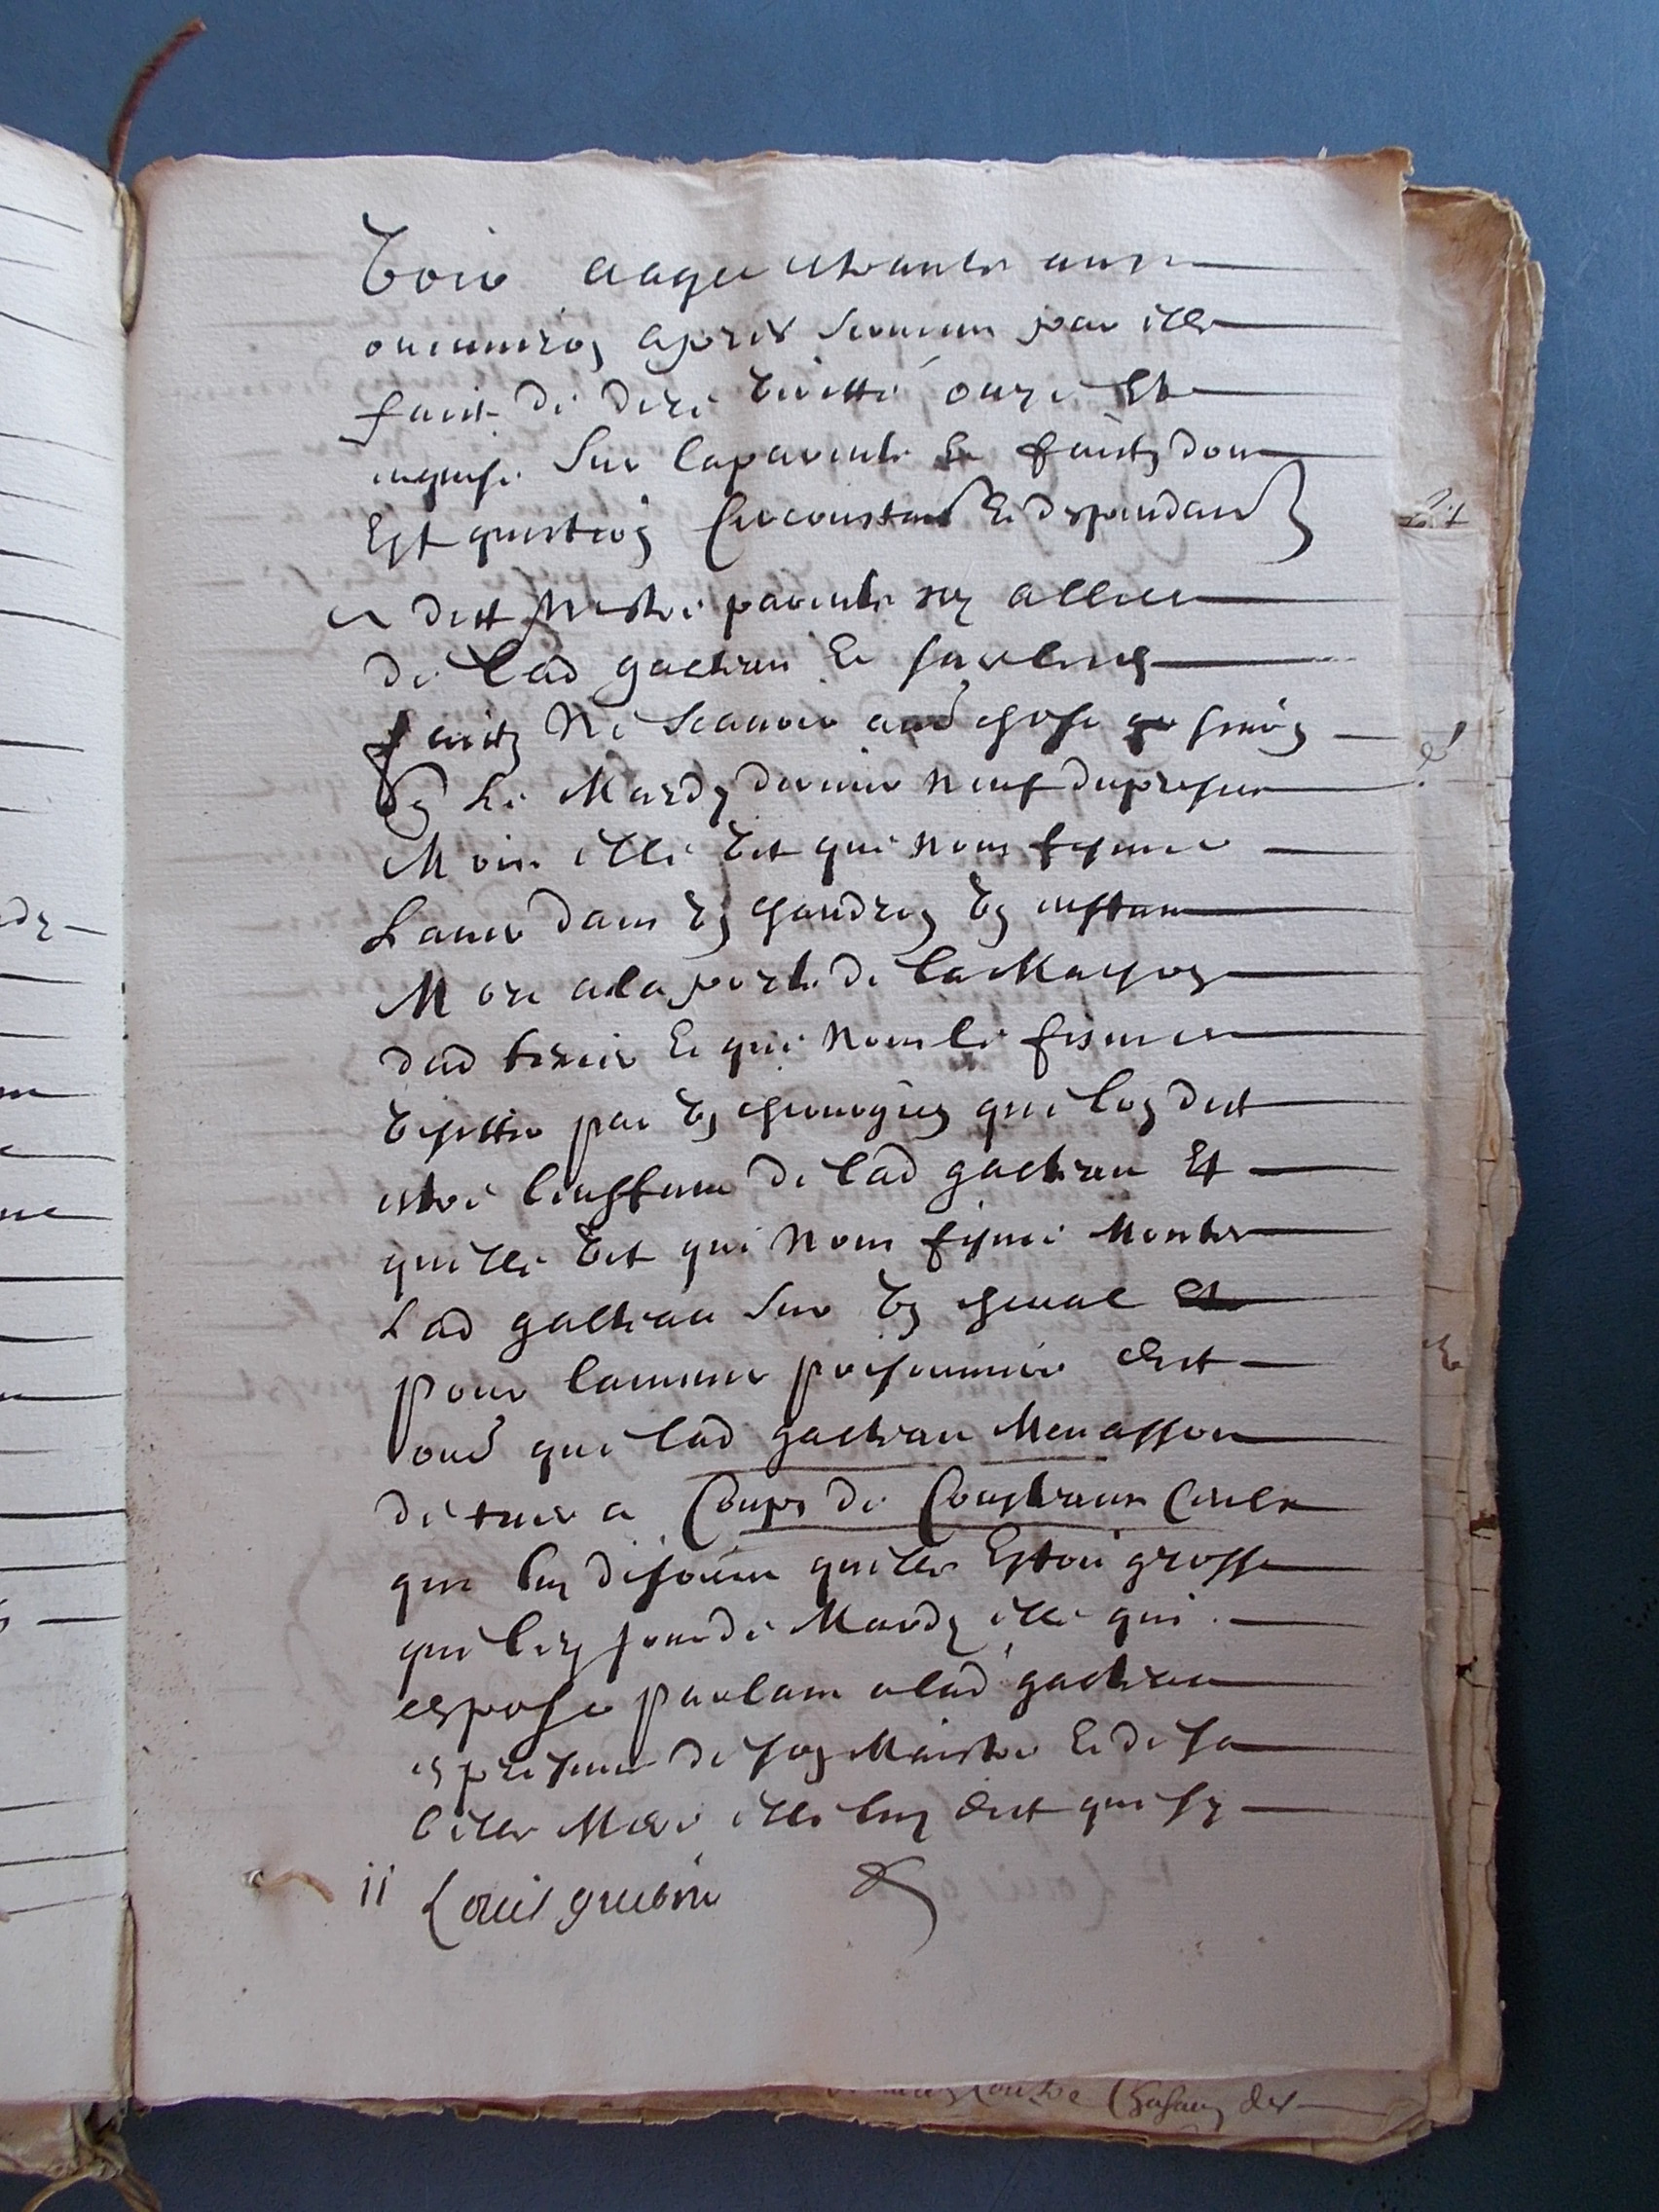 aagee trante ans
ou environ apres serment par elle
faict de dire veritte ouye et
enquise sur la parente et faictz dont
est question circonstances et despandances
a dict nestre parente ny alliee
de lad gachrau et sur lesd
faictz ne scavoir aud chose sinon
q le mardy dernier neuf du presant
mois elle vit que nous fismes
laver dans un chaudron un enffant
mort a la porte de la maison
dud et que nous le fismes
visitter par un chirurgien que lon dict
estre lenffant de lad gachrau et
quelle vit que nous fismes monter
lad gachrau sur un cheval
pour lamener prisonniere dict
oud que lad gachrau menassoit
de tuer a coups de cousteaux ceulx
que luy disoient quelle estoit grosse
que led jour de mardy elle qui
depose parlant a lad gachrau
en presence de son maistre et de sa
belle mere elle luy dict que sy
ii Louis